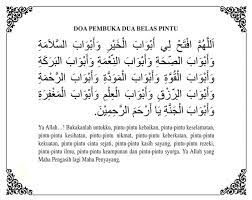 DOA PEMBUKA DUA BELAS PINTU
اَللّٰهُمَّ افْتَحْ لِي أَبْوَابَ الْخَيْرِ وَأَبْوَابَ السَّلَامَةِ
وَأَبْوَابَ الصِّحَّةِ وَأَبْوَابَ النِّعْمَةِ وَأَبْوَابَ الْبَرَكَةِ
وَأَبْوَابَ الْقُوَّةِ وَأَبْوَابَ الْمَوَدَّةِ وَأَبْوَابَ الرَّحْمَةِ
وَأَبْوَابَ الرِّزْقِ وَأَبْوَابَ الْعِلْمِ وَأَبْوَابَ الْمَغْفِرَةِ
وَأَبْوَابَ الْجَنَّةِ يَا أَرْحَمَ الرَّحِمِيْنَ.
Ya Allah...! Bukakanlah untukku, pintu-pintu kebaikan, pintu-pintu keselamatan,
pintu-pintu kesehatan, pintu-pintu nikmat, pintu-pintu keberkatan, pintu-pintu
kekuatan, pintu-pintu cinta sejati, pintu-pintu kasih sayang, pintu-pintu rezeki,
pintu-pintu ilmu, pintu-pintu keampunan dan pintu-pintu syurga. Ya Allah yang
Maha Pengasih lagi Maha Penyayang.